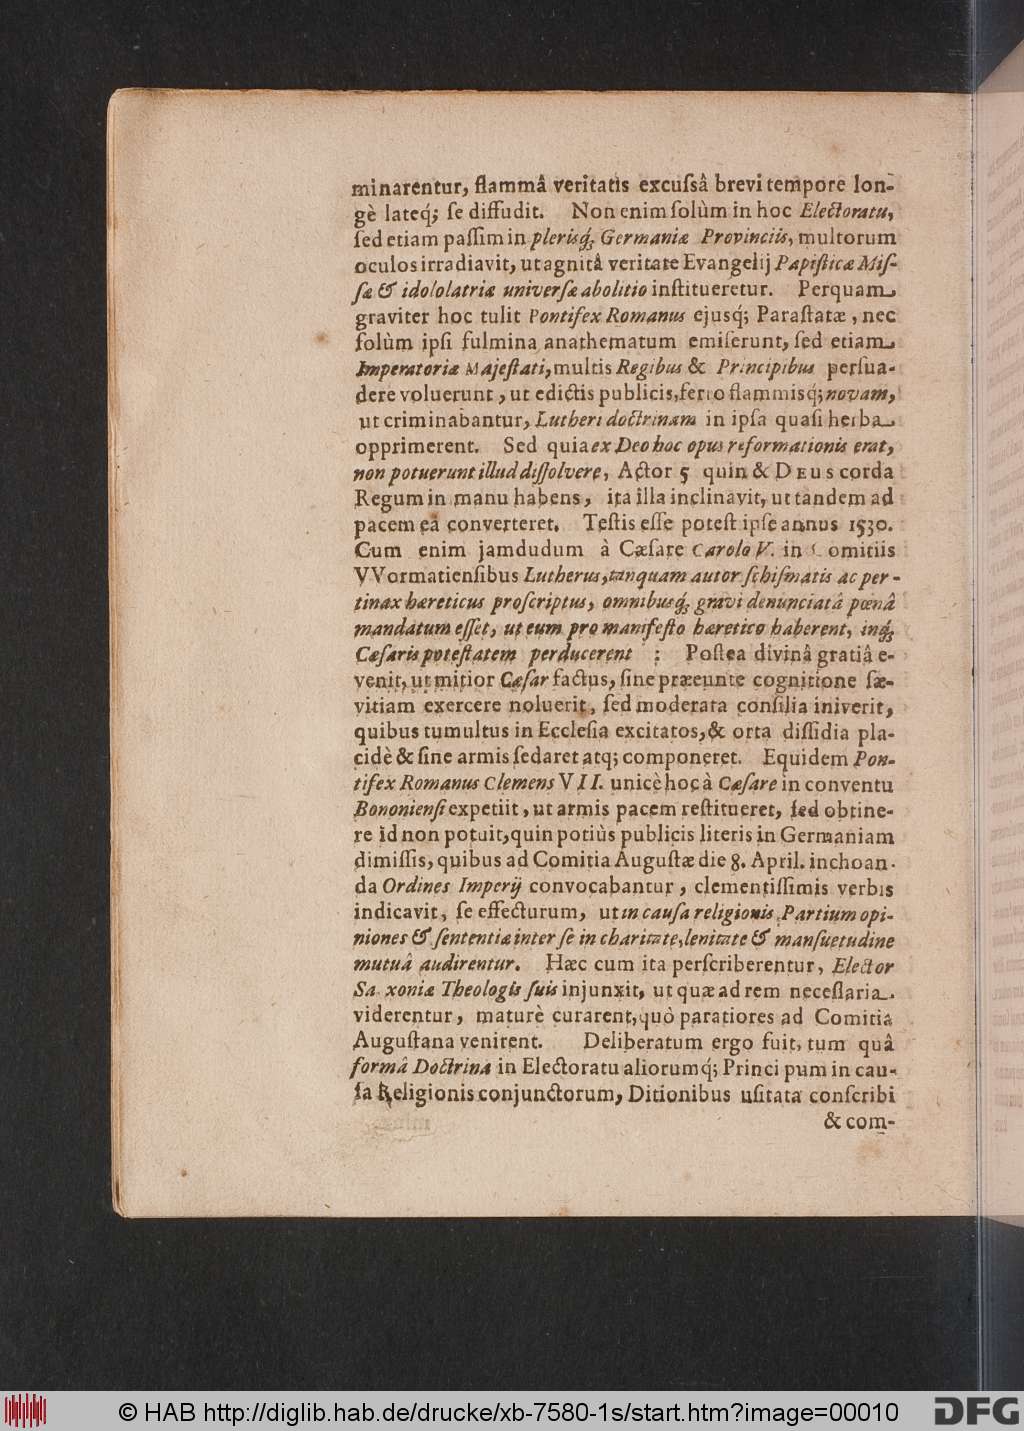 minarentur, flammâ veritatis excuſsâ brevi tempore lon-
gè lateq́; ſe diffudit. Non enim ſolùm in hoc Electoratu,
ſed etiam paſſim in plerisq́; Germaniæ Provinciis, multorum
oculos irradiavit, ut agnitâ veritate Evangelij Papiſticæ Miſ-
ſæ & idololatriæ univerſæ abolitio inſtitueretur. Perquam
graviter hoc tulit Pontifex Romanus ejusq́; Paraſtatæ, nec
ſolùm ipſi fulmina anathematum emiſerunt, ſed etiam
Imperatoriæ Majeſtati, multis Regibus & Principibus perſua-
dere voluerunt, ut edictis publicis, ferro flammisq́; novam,
ut criminabantur, Lutheri doctrinam in ipſa quaſi herba
opprimerent. Sed quia ex Deo hoc opus reformationis erat,
non potuerunt illud diſſolvere, Actor 5 quin & DEUS corda
Regum in manu habens, ita illa inclinavit, ut tandem ad
pacem ea converteret. Teſtis eſſe poteſt ipſe annus 1530.
Cum enim jamdudum à Cæſare Carolo V. in Comitiis
VVormatienſibus Lutherus, tanquam autor ſchiſmatis ac per-
tinax hæreticus proſcriptus, omnibusq́; gravi denunciatâ pœnâ
mandatum eſſet, ut eum pro manifeſto hæretico haberent, inq́;
Cæſaris poteſtatem perducerent : Poſtea divinâ gratiâ e-
venit, ut mitior Cæſar factus, ſine præeunte cognitione ſæ-
vitiam exercere noluerit, ſed moderata conſilia iniverit,
quibus tumultus in Eccleſia excitatos, & orta diſſidia pla-
cidè & ſine armis ſedaret atq; componeret. Equidem Pon-
tifex Romanus Clemens VII. unicè hoc à Cæſare in conventu
Bononienſi expetiit, ut armis pacem reſtitueret, ſed obtine-
re id non potuit, quin potiùs publicis literis in Germaniam
dimiſſis, quibus ad Comitia Auguſtæ die 8. April. inchoan-
da Ordines Imperij convocabantur, clementiſſimis verbis
indicavit, ſe effecturum, ut in cauſa religionis Partium opi-
niones & ſententiæ inter ſe in charitate, lenitate & manſuetudine
mutuâ audirentur. Hæc cum ita perſcriberentur, Elector
Saxoniæ Theologis ſuis injunxit, ut quæ ad rem neceſſaria
viderentur, maturè curarent, quò paratiores ad Comitia
Auguſtana venirent. Deliberatum ergo fuit, tum quâ
formâ Doctrina in Electoratu aliorumq́; Principum in cau-
ſa Religionis conjunctorum, Ditionibus uſitata conſcribi
& com-
© HAB http://diglib.hab.de/drucke/xb-7580-1s/start.htm?image=00010
DFG